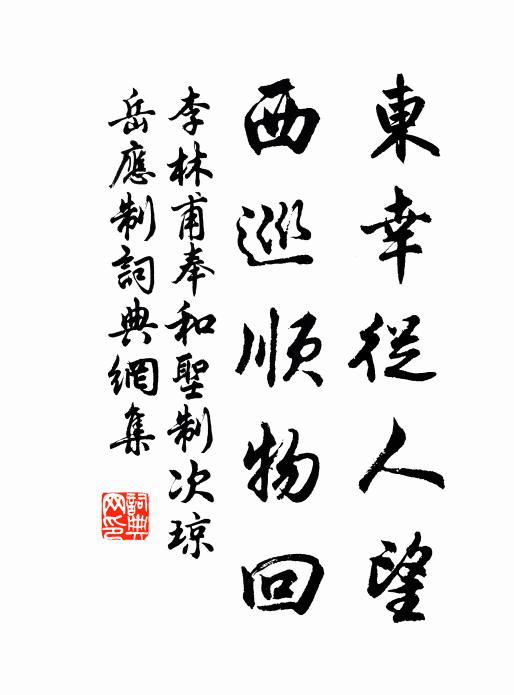 東幸從人望
西巡順物回
李林甫奉和聖制次瓊
岳應制詞典網集
詞典网印